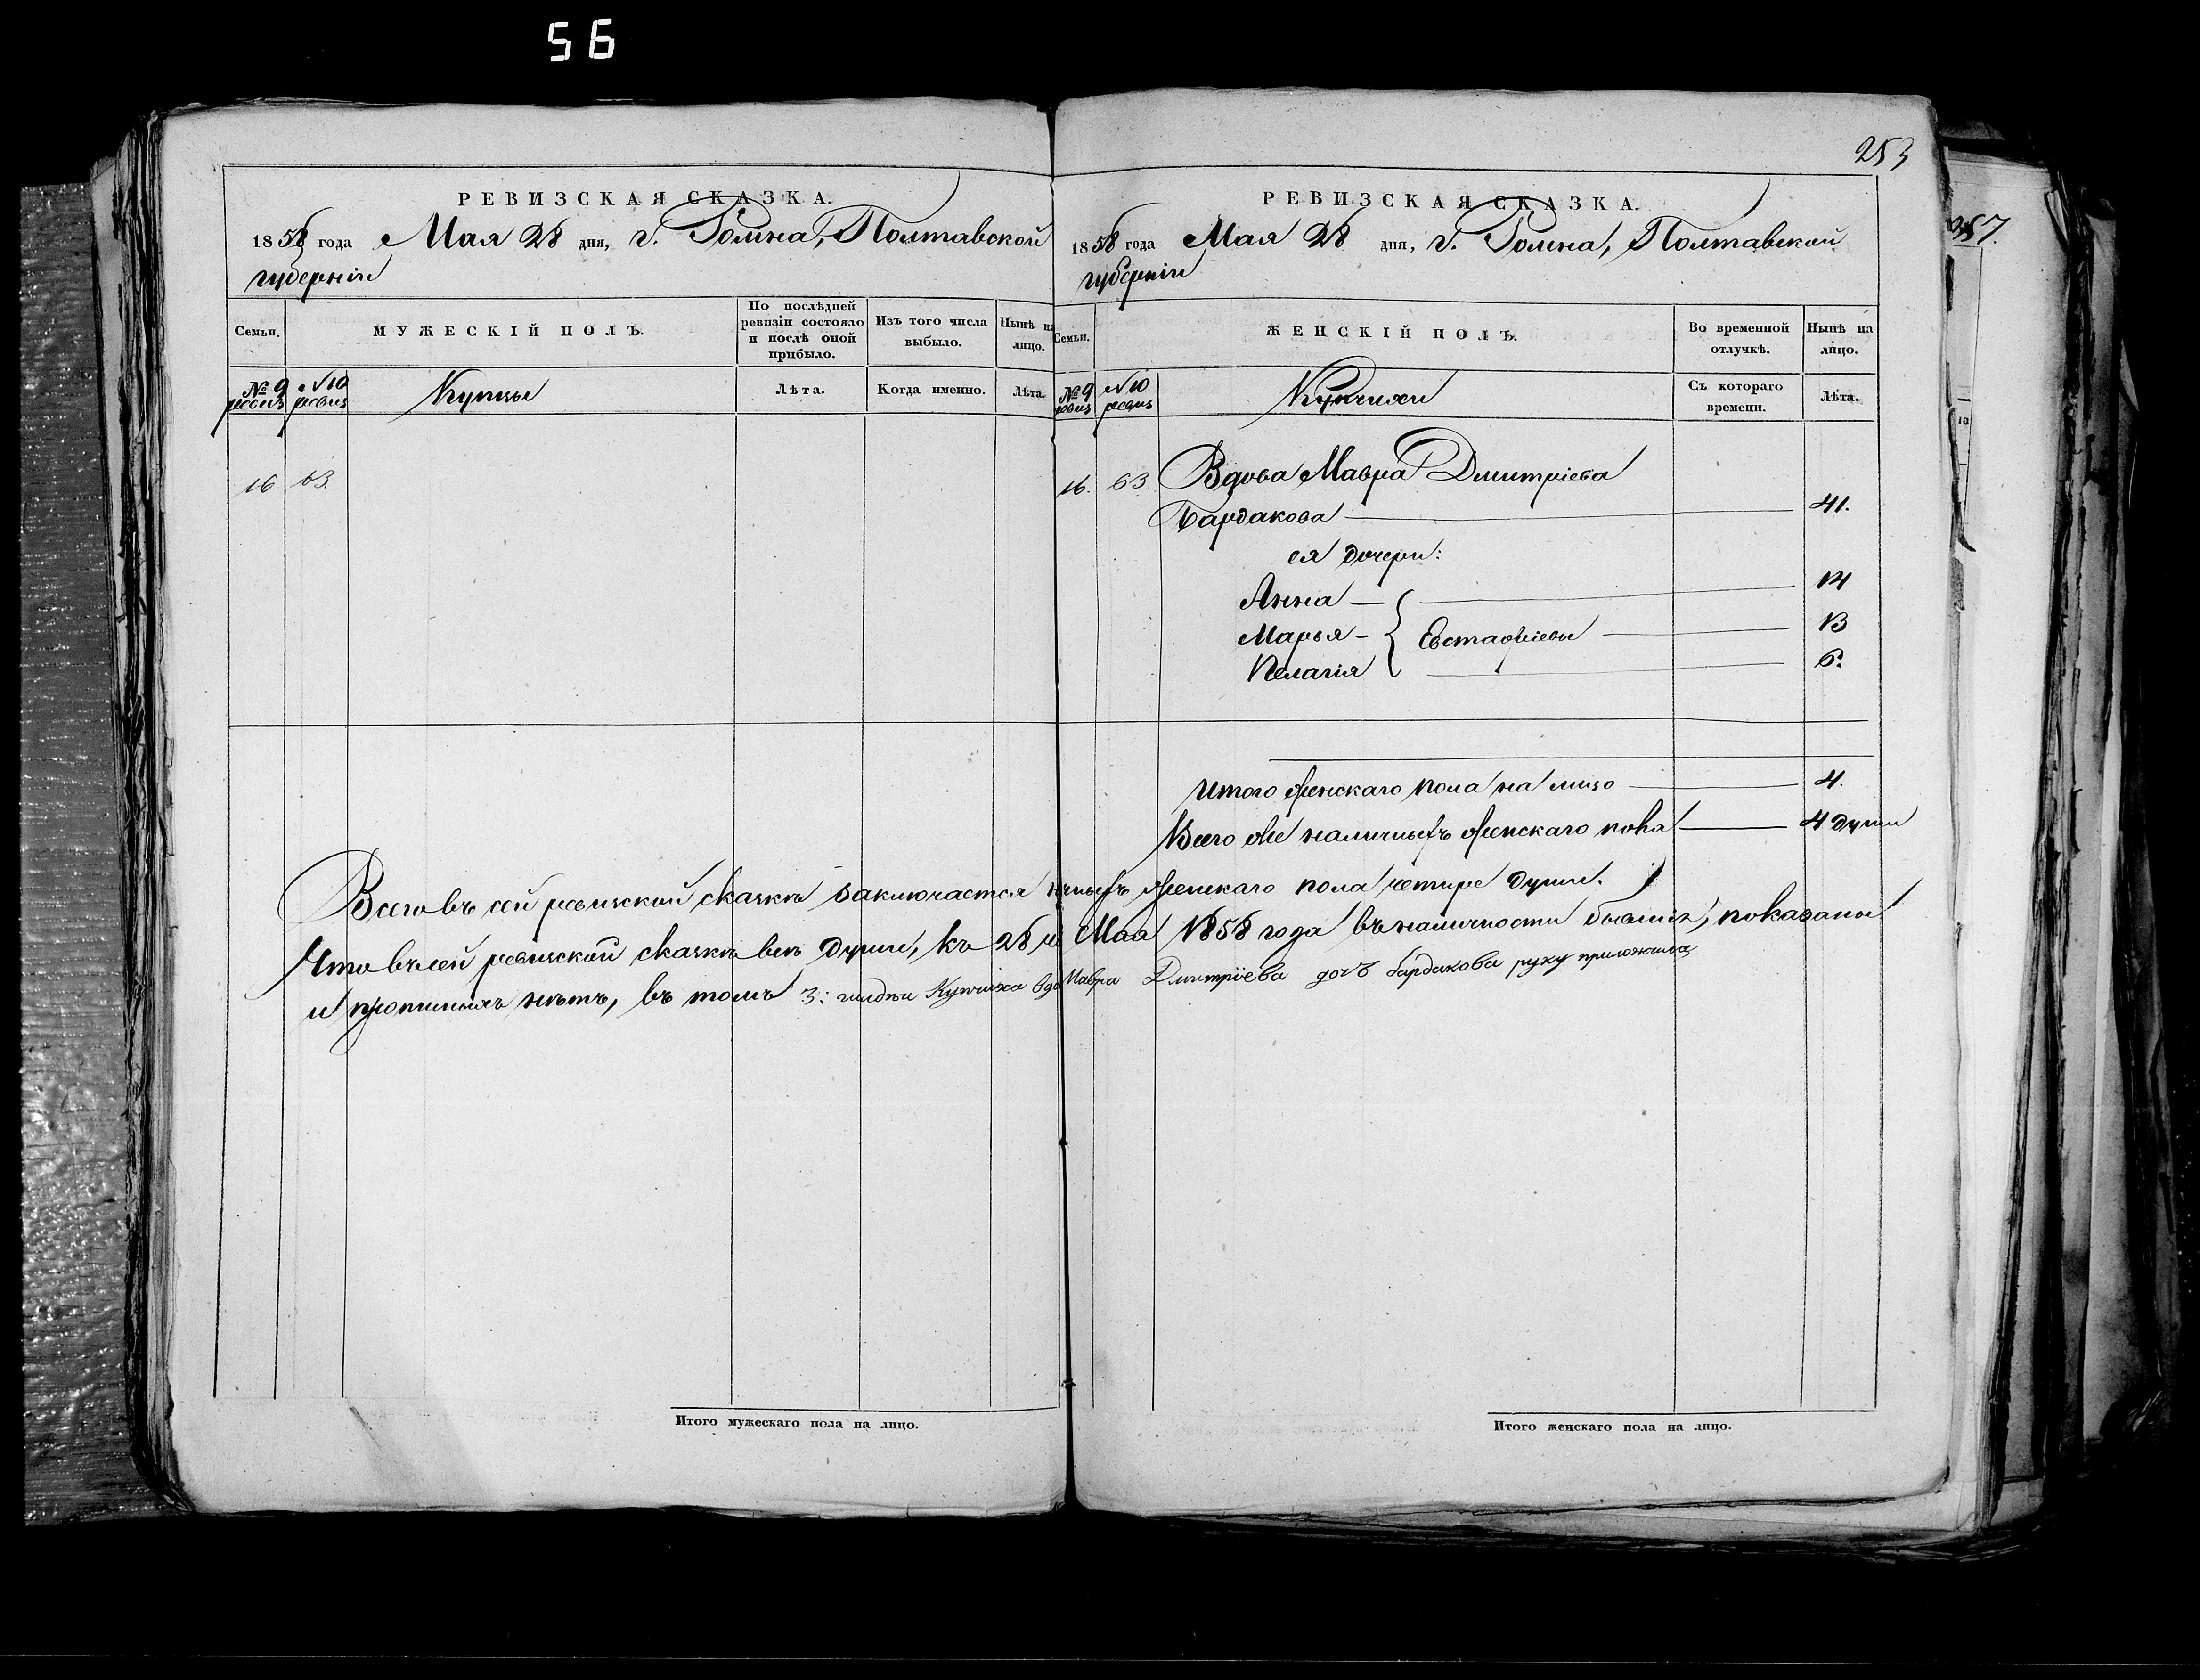 56
253
257.
РЕВИЗСКАЯ СКАЗКА.
1858 года Мая 28 дня, г. Ромна, Полтавской
губерніи
Семьи.
МУЖЕСКІЙ ПОЛЪ.
По послѣдней ревизіи состояло и послѣ оной прибыло.
Изъ того числа выбыло.
Нынѣ на лицо.
№ 9 ревиз
№ 10 ревиз
Купцы
Лѣта.
Когда именно.
Лѣта.
16 63.
РЕВИЗСКАЯ СКАЗКА.
1858 года Мая 28 дня, г. Ромна, Полтавской
губерніи
Семьи.
ЖЕНСКІЙ ПОЛЪ.
Во временной отлучкѣ.
Нынѣ на лицо.
№ 9 ревиз
№ 10 ревиз
Купчихи
Съ котораго времени.
Лѣта.
16. 63 Вдова Мавра Дмитріева
Бардакова 41.
ея дочери:
Анна 14
Марья Евстафіевы 13
Пелагія 6.
Итого женскаго пола на лицо 4.
Всего же наличныхъ женскаго пола 4 души
Всего въ сей ревизской сказкѣ заключается женскаго пола четыре души.
Что въ сей ревизской сказкѣ всѣ души, къ 28 Мая 1858 года въ наличности бывшія, показаны
и прописныхъ нѣтъ, въ томъ 3: гилдіи Купчиха Мавра Дмитріева дочъ бардакова руку приложила
Итого мужескаго пола на лицо.
Итого женскаго пола на лицо.